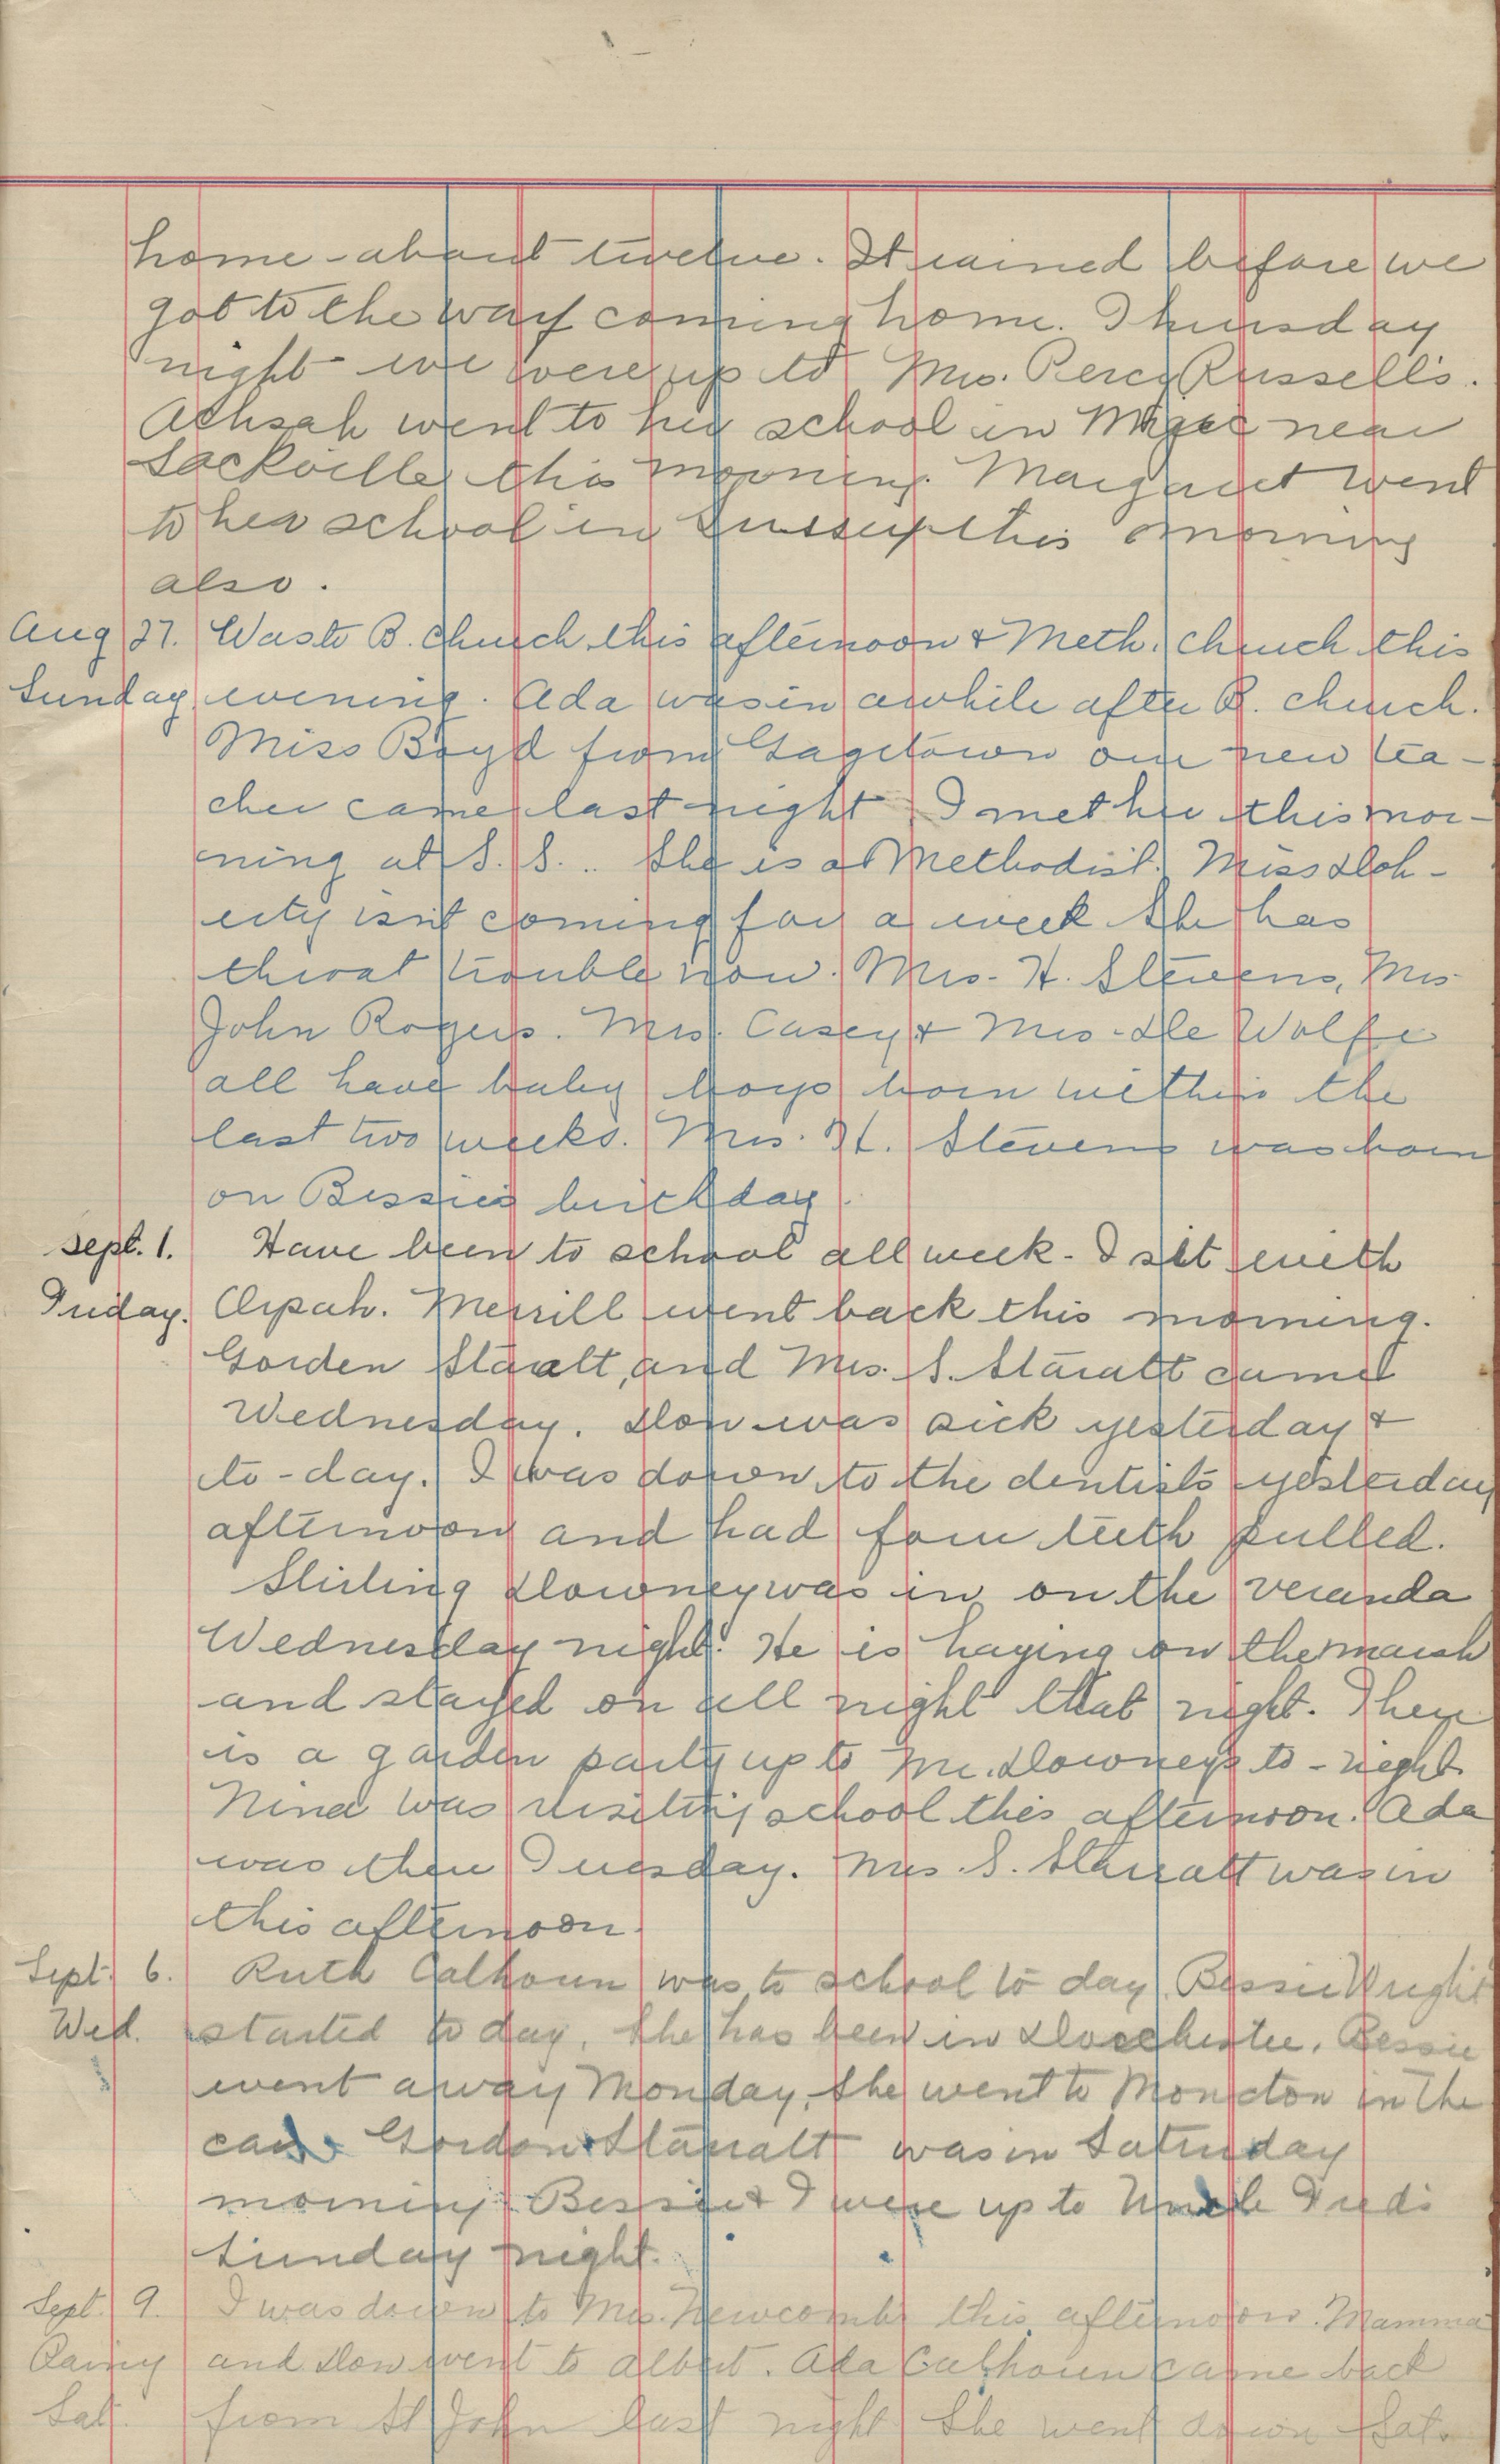 home - about twelve. It rained before we
got to the way coming home. Thursday
night we were up to Mrs. Percy Russell's.
Achsah went to her school in near
Sackville this morning. Margaret went
to her school in Sussex this morning
also.
Aug 27. Was to B. church this afternoon & Meth. church this
Sunday evening. Ada was in awhile after B. church.
Miss Boyd from Gagetown our new tea-
cher came last night I met her this mor-
ning at S. S. . She is a Methodist. Miss Doh-
erty isn't coming for a week She has
throat trouble now. Mrs. H. Stevens, Mrs.
John Rogers. Mrs. Casey & Mrs. De Wolfe
all have baby boys born within the
last two weeks. Mrs. H. Stevens was born
on Bessie's birthday.
Sept. 1. Have been to school all week. I sit with
Friday. Orpah. Merrill went back this morning.
Gorden Staratt, and Mrs. S. Staratt came
Wednesday. Don was sick yesterday &
to-day. I was down to the dentists yesterday
afternoon and had four teeth pulled.
Stirling Downey was in on the veranda
Wednesday night. He is haying on the marsh
and stayed on all night that night. There
is a garden party up to Mr. Downey's to-night.
Nina was visiting school this afternoon. Ada
was there Tuesday. Mrs. S. Starratt was in
this afternoon.
Sept. 6. Ruth Calhoun was to school to day. Bessie Wright
Wed. started to day. She has been in Dorchester. Bessie
went away Monday. She went to Moncton in the
car. Gordon Starratt was in Saturday
morning. Bessie & I were up to Uncle Fred's
Sunday night.
Sept. 9. I was down to Mrs. Newcombs this afternoon. Mamma
Rainy and Don went to Albert. Ada Calhoun came back
Sat. from St John last night She went down Sat.